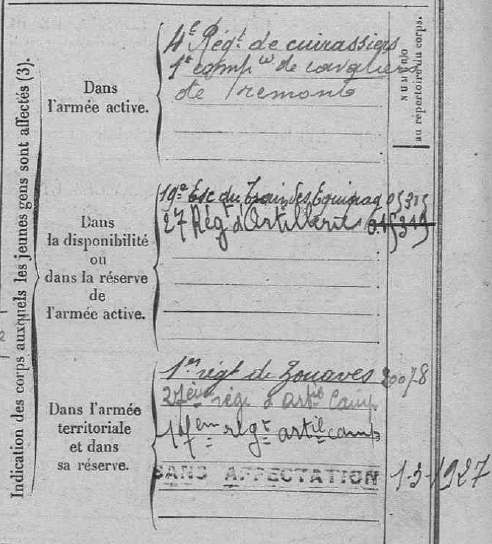 Indication des corps auxquels les jeunes gens sont affectés (3).
NUMÉRO
au répertoire du corps.
Dans
l'armée active.
4e Régt de cuirassiers
1e comp ie de cavaliers
de remonte
Dans
la disponibilité
ou
dans la réserve
de
l'armée active.
19e Esc du Train des Equipag
27 Régt d'Artillerie
Dans l'armée
territoriale
et dans
sa réserve.
1er régt de Zouaves
27ème régt d'artie Camp
17em regt artil camp
SANS AFFECTATION 1-3-1927